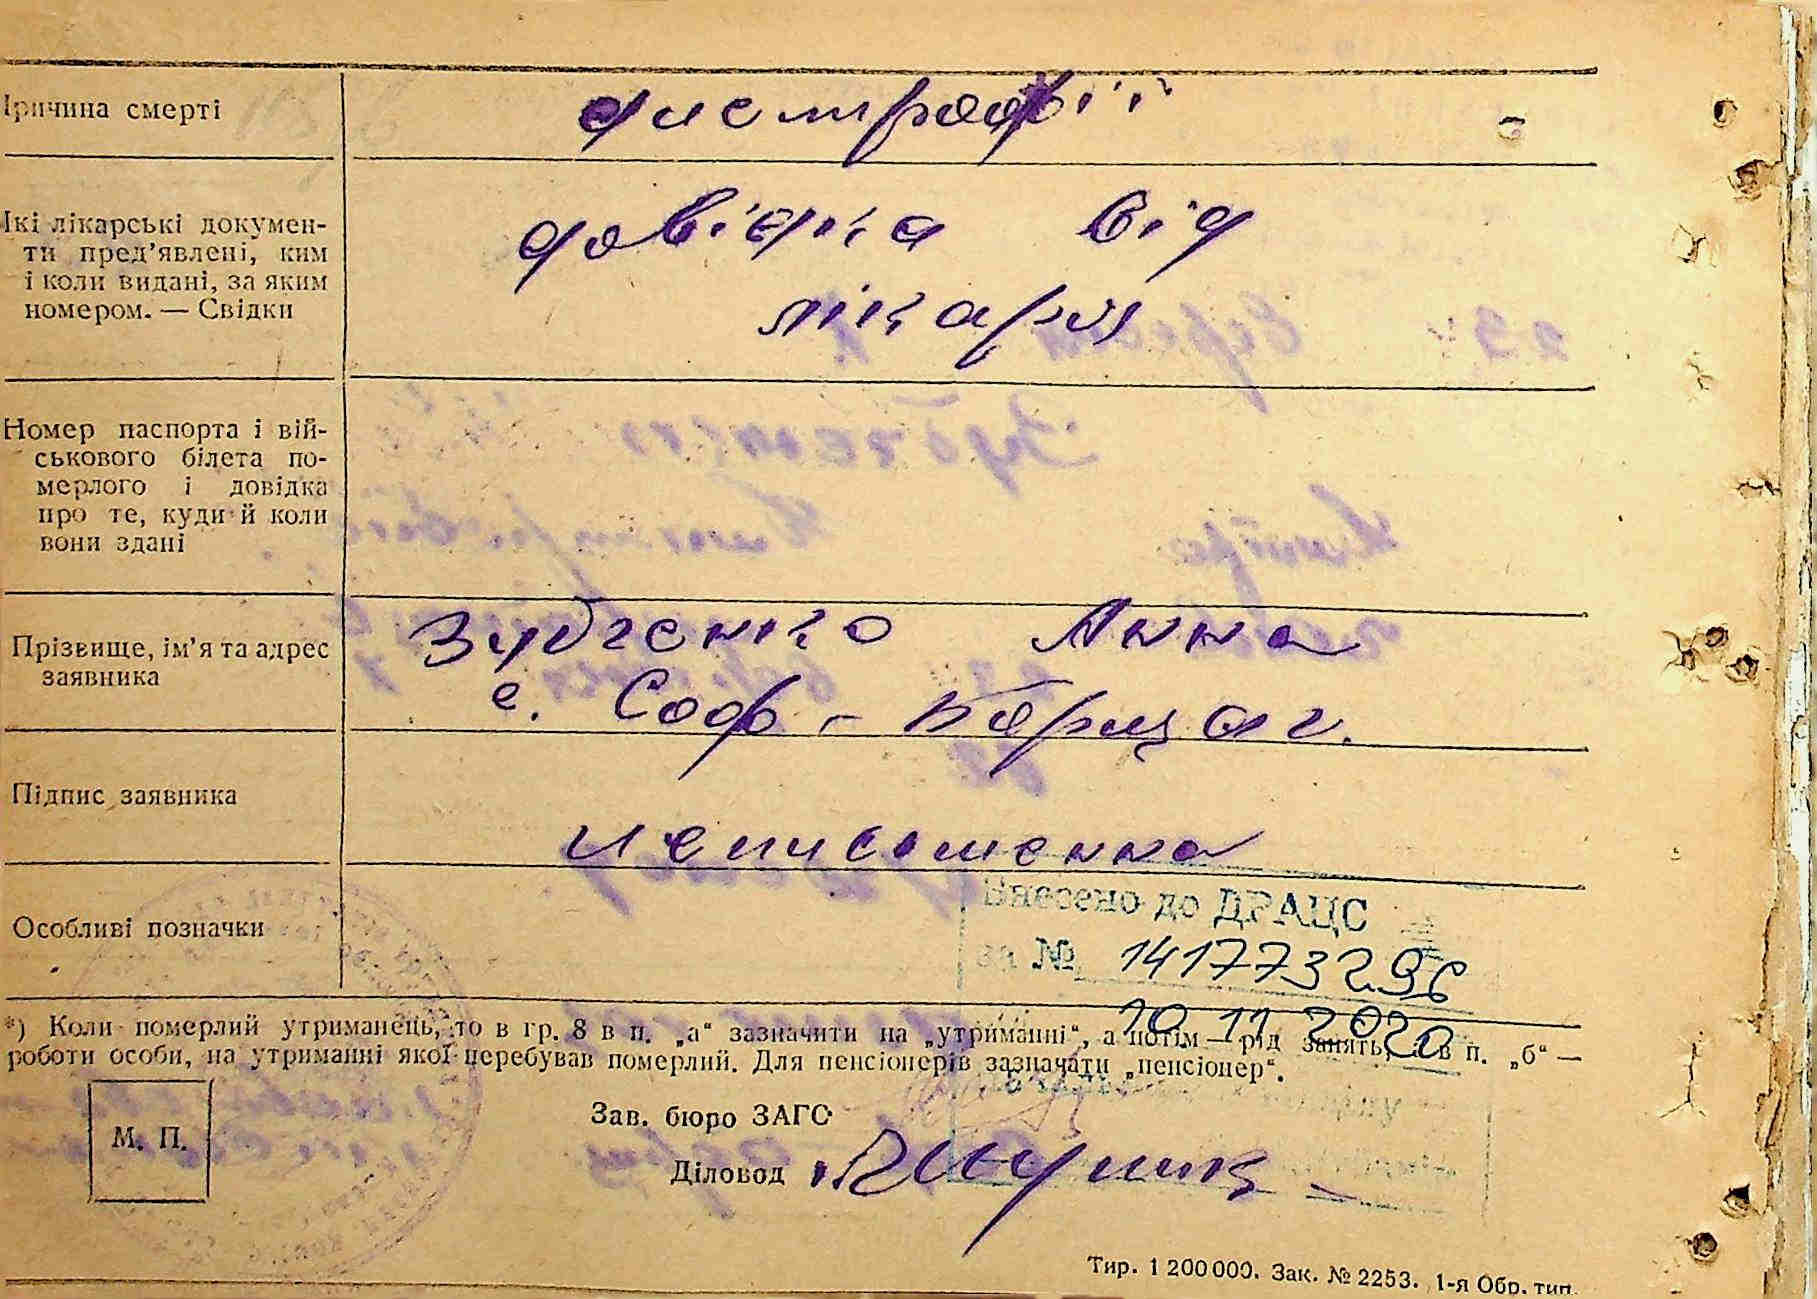 Причина смерті
дистрофії
Які лікарські докумен-
ти пред'явлені, ким
і коли видані, за яким
номером. — Свідки
довідка від
лікаря
Номер паспорта і вій-
ськового білета по-
мерлого і довідка
про те, куди й коли
вони здані
Прізвище, ім'я та адрес
заявника
Зубченко Анна
с. Соф - Борщаг.
Підпис заявника
неписьменна
Особливі позначки
Внесено до ДРАЦС
за № 141773296
10 11 2020
*) Коли померлий утриманець, то в гр. 8 в п. „а“ зазначити на „утриманні“, а потім — рід занять, а в п. „б“ —
роботи особи, на утриманні якої перебував померлий. Для пенсіонерів зазначати „пенсіонер“.
М. П.
Зав. бюро ЗАГС
Діловод
Тир. 1 200 000. Зак. № 2253. 1-я Обр. тип.